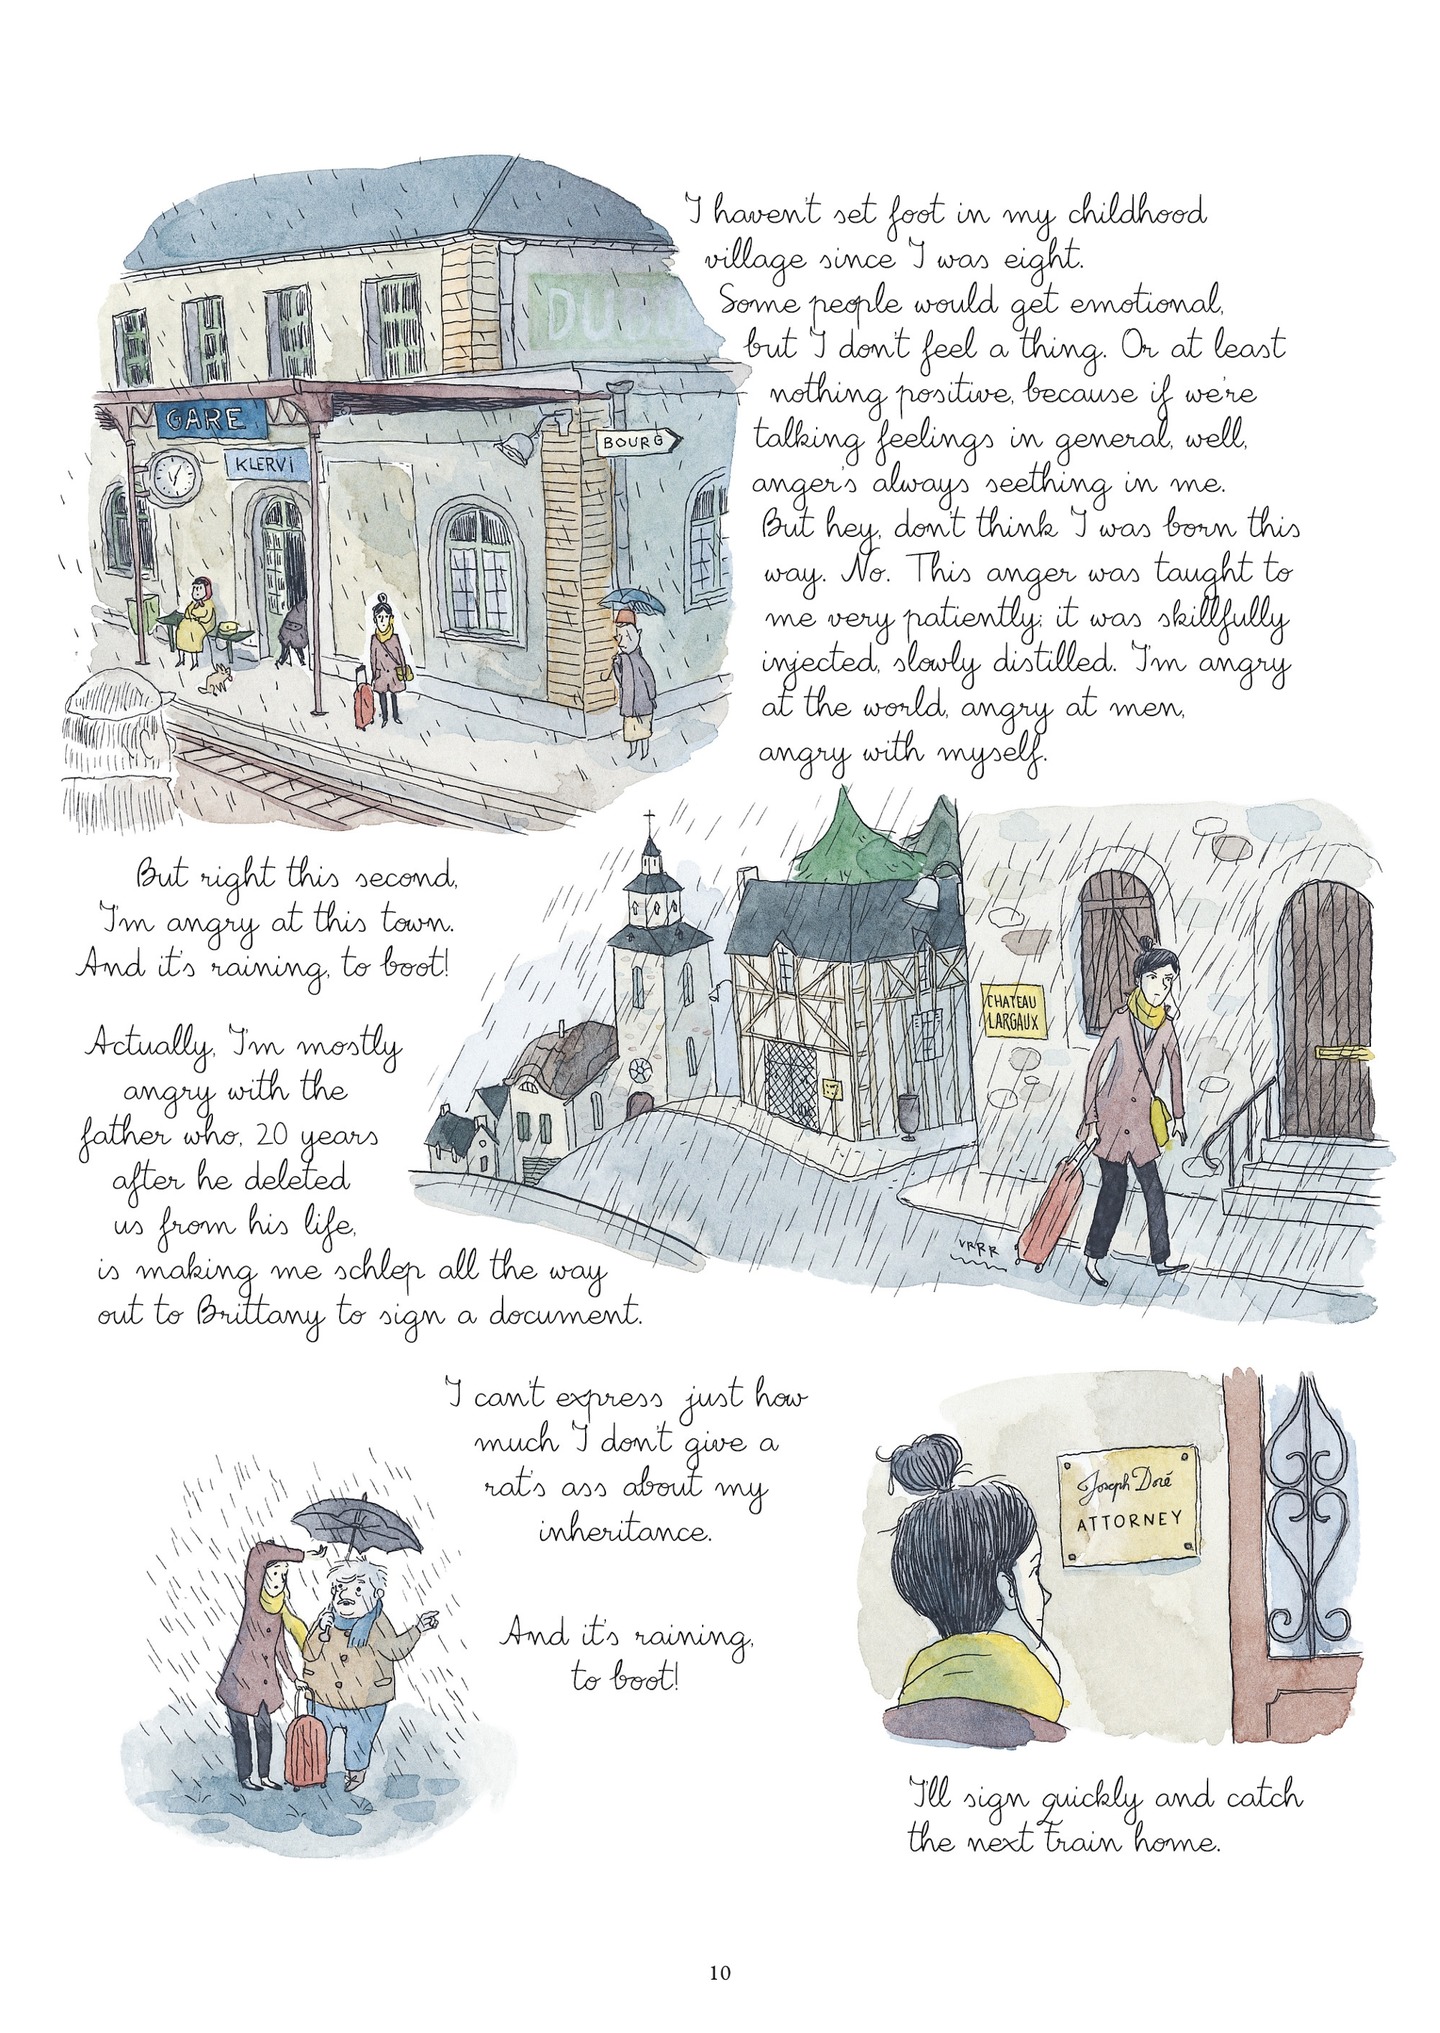 I haven't set foot in my childhood
village since I was eight.
Some people would get emotional,
but I don't feel a thing. Or at least
nothing positive, because if we're
talking feelings in general, well,
anger's always seething in me.
But hey, don't think I was born this
way. No. This anger was taught to
me very patiently; it was skillfully
injected, slowly distilled. I'm angry
at the world, angry at men,
angry with myself.
GARE
KLERVI
BOURG
But right this second,
I'm angry at this town.
And it's raining, to boot!
Actually, I'm mostly
angry with the
father who, 20 years
after he deleted
us from his life,
is making me schlep all the way
out to Brittany to sign a document.
CHATEAU
LARGAUX
VRRR
I can't express just how
much I don't give a
rat's ass about my
inheritance.
And it's raining,
to boot!
Joseph Doré
ATTORNEY
I'll sign quickly and catch
the next train home.
10